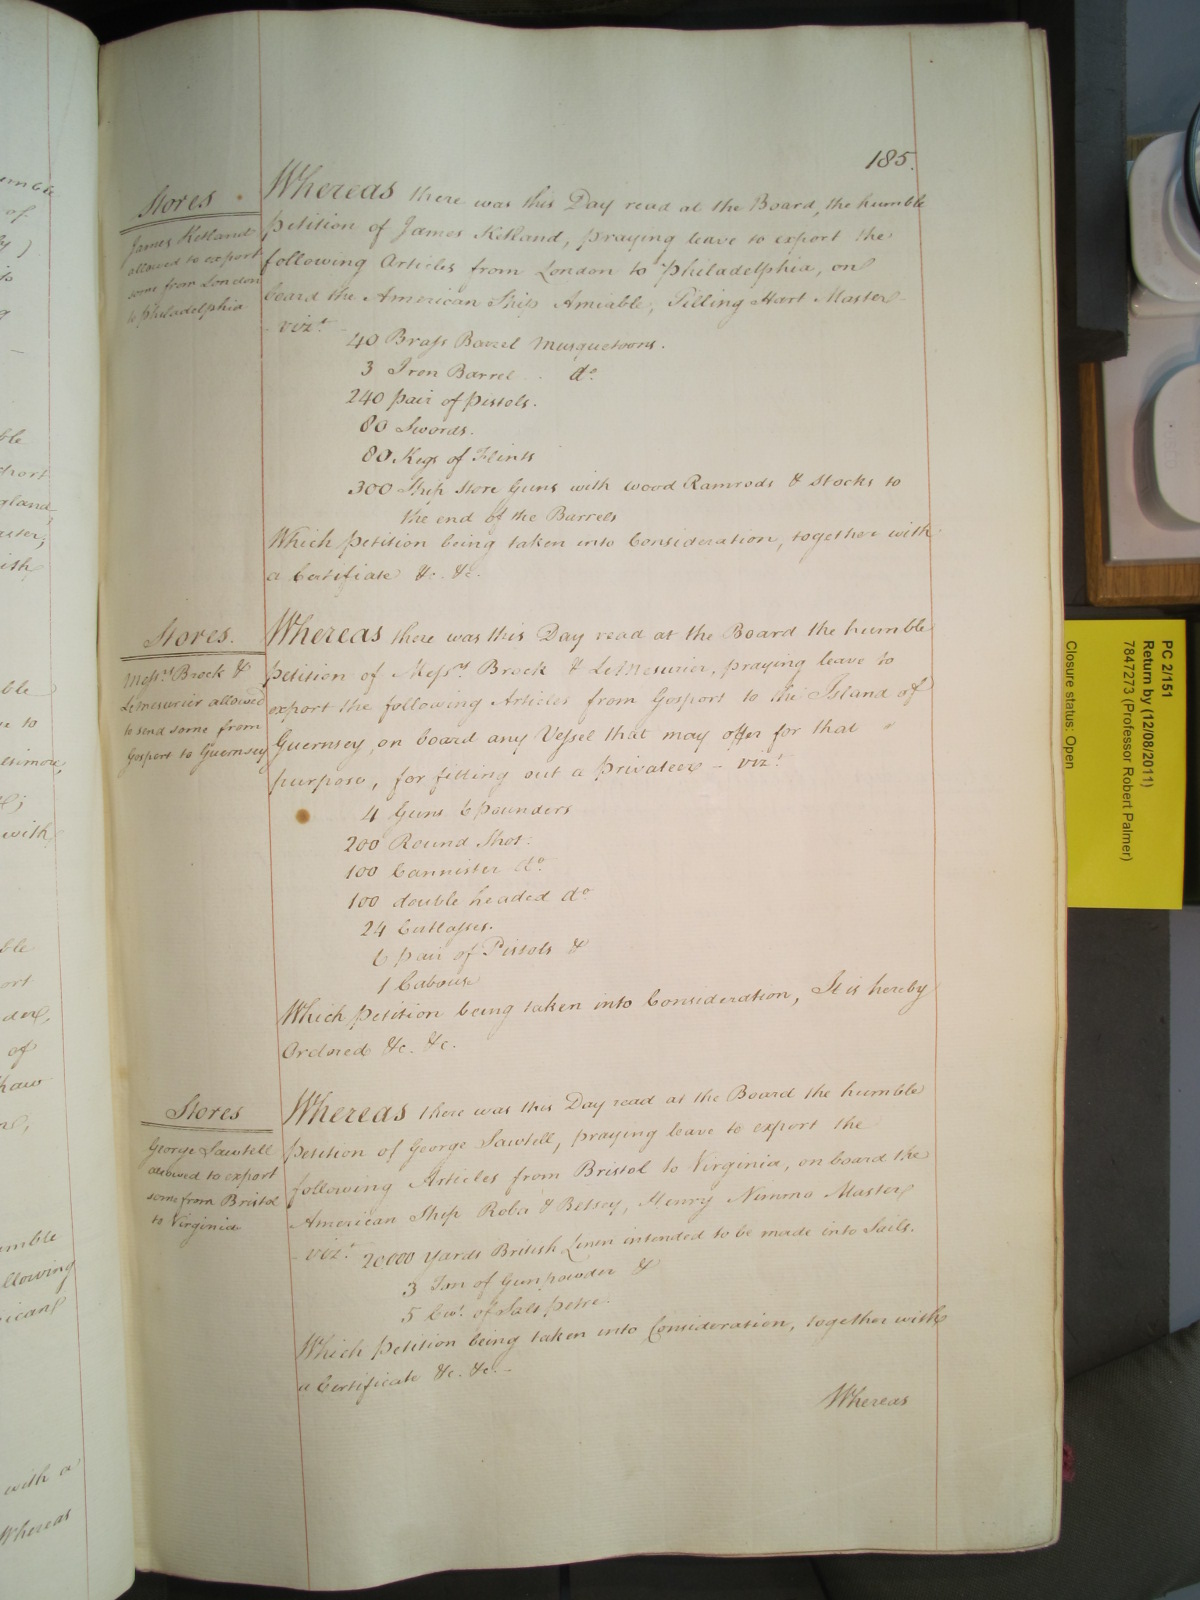 185.
Stores
James Ketland
allowed to export
some from London
to Philadelphia
Whereas there was this Day read at the Board, the humble
Petition of James Ketland, praying leave to export the
following Articles from London to Philadelphia, on
board the American Ship Amiable, Tilling Hart Master
vizt.
40 Brass Barrel Musquetoons.
3 Iron Barrel do.
240 pair of Pistols.
80 Swords.
80 Kegs of Flints
300 Ship Store Guns with wood Ramrods & Stocks to
the end of the Barrels
Which Petition being taken into Consideration, together with
a Certificate &c. &c.
Stores.
Messrs. Brock &
LeMesurier allowed
to send some from
Gosport to Guernsey
Whereas there was this Day read at the Board the humble
Petition of Messrs Brock & LeMesurier, praying leave to
export the following Articles from Gosport to the Island of
Guernsey, on board any Vessel that may offer for that
purpose, for fitting out a Privateer - vizt.
4 Guns 6 pounders
200 Round Shot.
100 Cannister do.
100 double headed do
24 Cutlasses.
6 pair of Pistols &
1 Caboose
Which Petition being taken into Consideration, It is hereby
Ordered &c. &c.
Stores
George Sawtell
allowed to export
some from Bristol
to Virginia
Whereas there was this Day read at the Board the humble
Petition of George Sawtell, praying leave to export the
following Articles from Bristol to Virginia, on board the
American Ship Roba & Betsey, Henry Nimmo Master,
- vizt. 20000 Yards British Linen intended to be made into Sails.
3 Ton of Gunpowder &
5 Cwt. of Salt petre.
Which Petition being taken into Consideration, together with
a Certificate &c. &c. -
Whereas
umble
of
ble
gland
ble
re to
with
ble
ort
of
umble
llowing
with a
Whereas
PC 2/151
Return by (12/08/2011)
7847273 (Professor Robert Palmer)
Closure status: Open